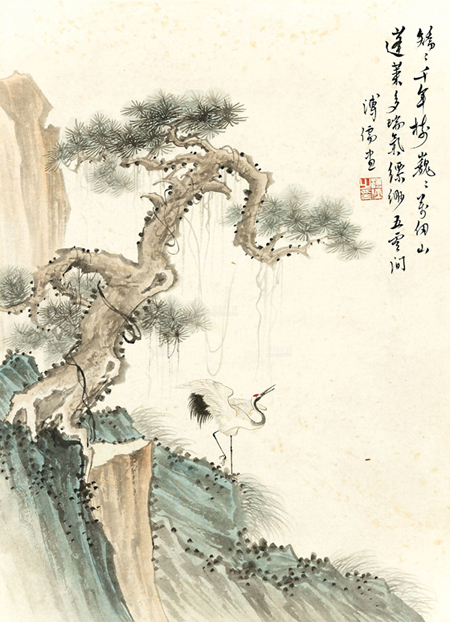 矯〻千年樹巍〻萬仞山
蓬萊多瑞氣縹緲五雲間
溥儒畫